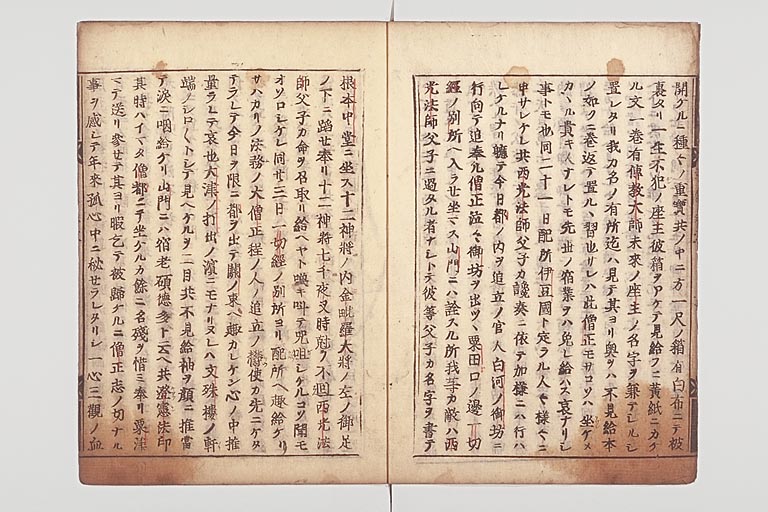 開クルニ種々ノ重寳共ノ中ニ方一尺ノ箱有白布ニテ被
裹タリ一生不犯ノ座主彼箱ヲアケテ見給フニ黄紙ニカケ
ル文一巻有傳教大師未來ノ座主ノ名字ヲ兼テシルシ
置レタリ我カ名ノ有所迄ハ見テ其ヨリ奥ヲハ不見給本
ノ如クニ巻返テ置ルヽ習也サレハ此僧正モサコソハ坐ケメ
カヽル貴キ人ナレトモ先世ノ宿業ヲハ免レ給ハス哀ナリシ
事トモ也同二十一日配所伊豆國ト定ラル人々様々ニ
申サレケレ共西光法師父子カ讒奏ニ依テ加様ニハ行ハ
レケルナリ軈テ今日都ノ内ヲ追立ノ官人白河ノ御坊ニ
行向テ追奉ル僧正泣々御坊ヲ出ツヽ粟田口ノ邊一切
經ノ別所ヘ入ラセ坐マス山門ニハ詮スル所我等カ敵ハ西
光法師父子ニ過タル者ナシトテ彼等父子カ名字ヲ書テ
根本中堂ニ坐ス十二神將ノ内金毗羅大將ノ左ノ御足
ノ下ニ蹈セ奉リ十二神將七千夜叉時尅ク不廻西光法
師父子カ命ヲ名取リ給ヘヤト喚キ叫テ咒咀シケルコソ聞モ
オソロシケレ同廿三日一切經ノ別所ヨリ配所ヘ趣給ケリ
サハカリノ法務ノ大僧正程ノ人ノ追立ノ欝使カ先ニケタ
テラレテ今日ヲ限ニ都ヲ出テ關ノ東ヘ趣カレケン心ノ中推
量ラレテ哀也大津ノ打出ノ濱ニモナリヌレハ文殊樓ノ軒
端ノシロ〱トシテ見ヘケルヲ二目共不見給袖ヲ顔ニ推當
テ涙ニ咽給ケリ山門ニハ宿老碩德多ト云ヘ共澄憲法印
其時ハイマタ僧都ニテ坐ケルカ餘ニ名殘ヲ惜ミ奉リ粟津
マテ送リ參セテ其ヨリ暇乞テ被歸ケルニ僧正志ノ切ナル
事ヲ感シテ年來孤心中ニ秘セラレタリシ一心三觀ノ血